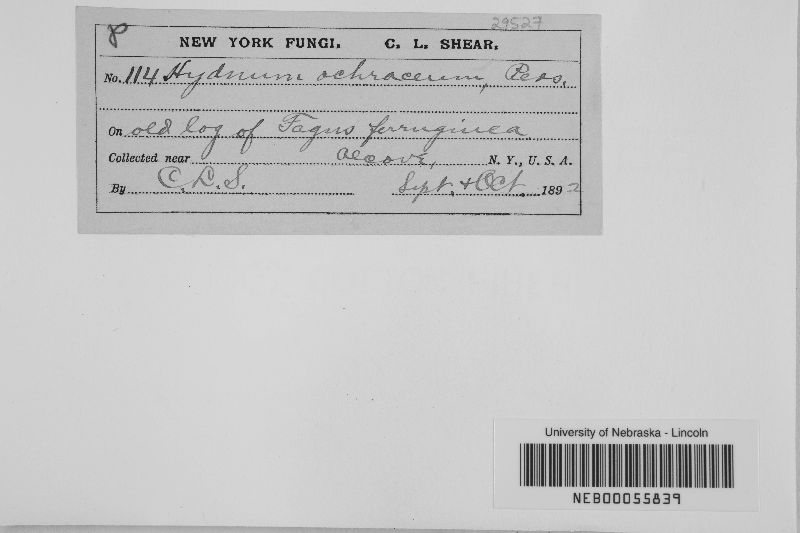 29527
P
NEW YORK FUNGI. C. L. SHEAR.
No. 114 Hydnum ochraceum, Pers.
On old log of Fagus ferruginea
Collected near Alcove, N. Y., U. S. A.
By C. L. S. Sept. & Oct. 1892
University of Nebraska - Lincoln
NEB00055839